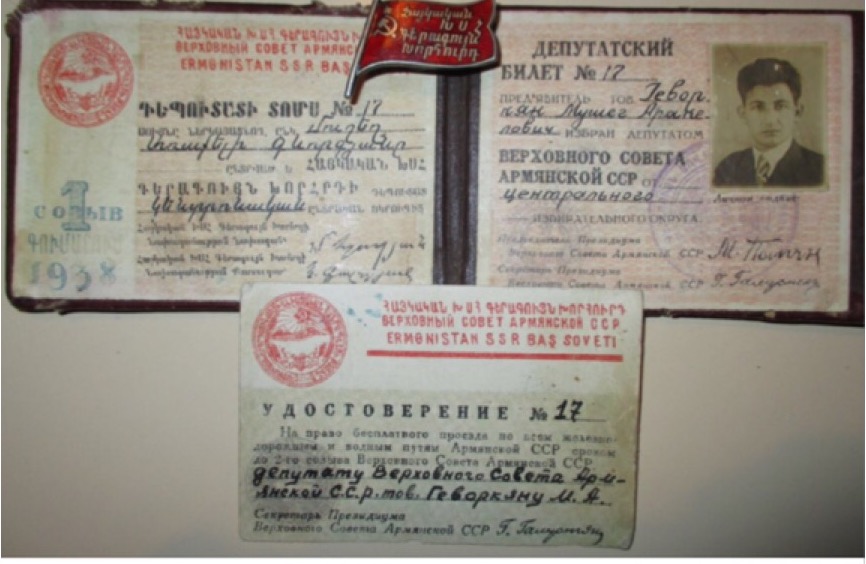 ՀԱՅԿԱԿԱՆ ԽՍՀ ԳԵՐԱԳՈՒՅՆ ԽՈ
ВЕРХОВНЫЙ СОВЕТ АРМЯНСК
ERMƏNISTAN SSR BAŞ
ԴԵՊՈՒՏԱՏԻ ՏՈՄՍ № 17
Մուշեղ
ՀԱՅԿԱԿԱՆ ԽՍՀ
ԳԵՐԱԳՈՒՅՆ ԽՈՐՀՐԴԻ
կենտրոնական
1
СОЗЫВ
1938
Հայկական
ԽՍՀ
Գերագույն
Խորհուրդ
ДЕПУТАТСКИЙ
БИЛЕТ № 17
ПРЕД'ЯВИТЕЛЬ ТОВ. Гевор-
кян Мушег Араке-
лович ИЗБРАН ДЕПУТАТОМ
ВЕРХОВНОГО СОВЕТА
АРМЯНСКОЙ ССР ОТ
Центрального
ИЗБИРАТЕЛЬНОГО ОКРУГА
Председатель Президиума
Верховного Совета Армянской ССР
Секретарь Президиума
Верховного Совета Армянской ССР Г. Галустян
ՀԱՅԿԱԿԱՆ ԽՍՀ ԳԵՐԱԳՈՒՅՆ ԽՈՐՀՈՒՐԴ
ВЕРХОВНЫЙ СОВЕТ АРМЯНСКОЙ ССР
ERMƏNISTAN SSR BAŞ SOVETI
УДОСТОВЕРЕНИЕ № 17
На право бесплатного проезда по всем железно-
дорожным и водным путям Армянской ССР сроком
до 2-го созыва Верховного Совета Армянской ССР
депутату Верховного Совета Арм-
янской С.С.р. тов. Геворкяну М. А.
Секретарь Президиума
Верховного Совета Армянской ССР Г. Галустян